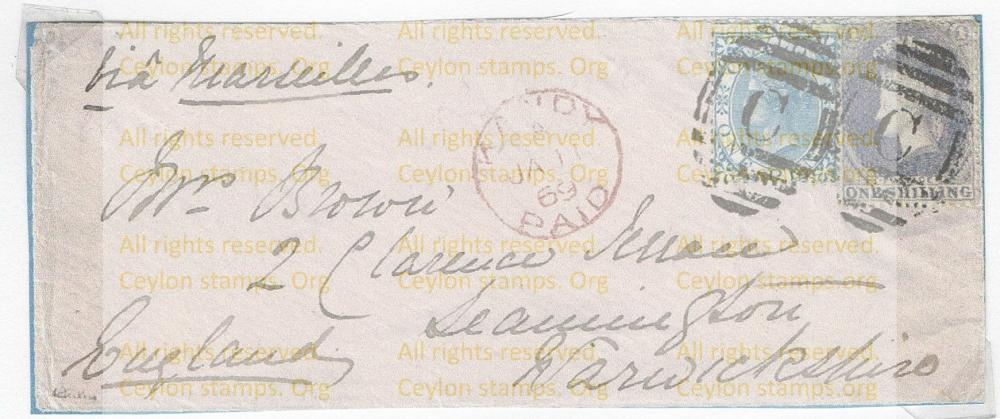 via Marseilles.
KANDY
PAID
69
C
C
ONE SHILLING
Mrs Brown
2 Clarence Terrace
Leamington
Warwickshire
England
All rights reserved. All rights reserved. All rights reserved.
Ceylon stamps. Org Ceylon stamps. Org Ceylon stamps. Org
All rights reserved. All rights reserved. All rights reserved.
Ceylon stamps. Org Ceylon stamps. Org Ceylon stamps. Org
All rights reserved. All rights reserved. All rights reserved.
Ceylon stamps. Org Ceylon stamps. Org Ceylon stamps. Org
All rights reserved. All rights reserved. All rights reserved.
Ceylon stamps. Org Ceylon stamps. Org Ceylon stamps. Org